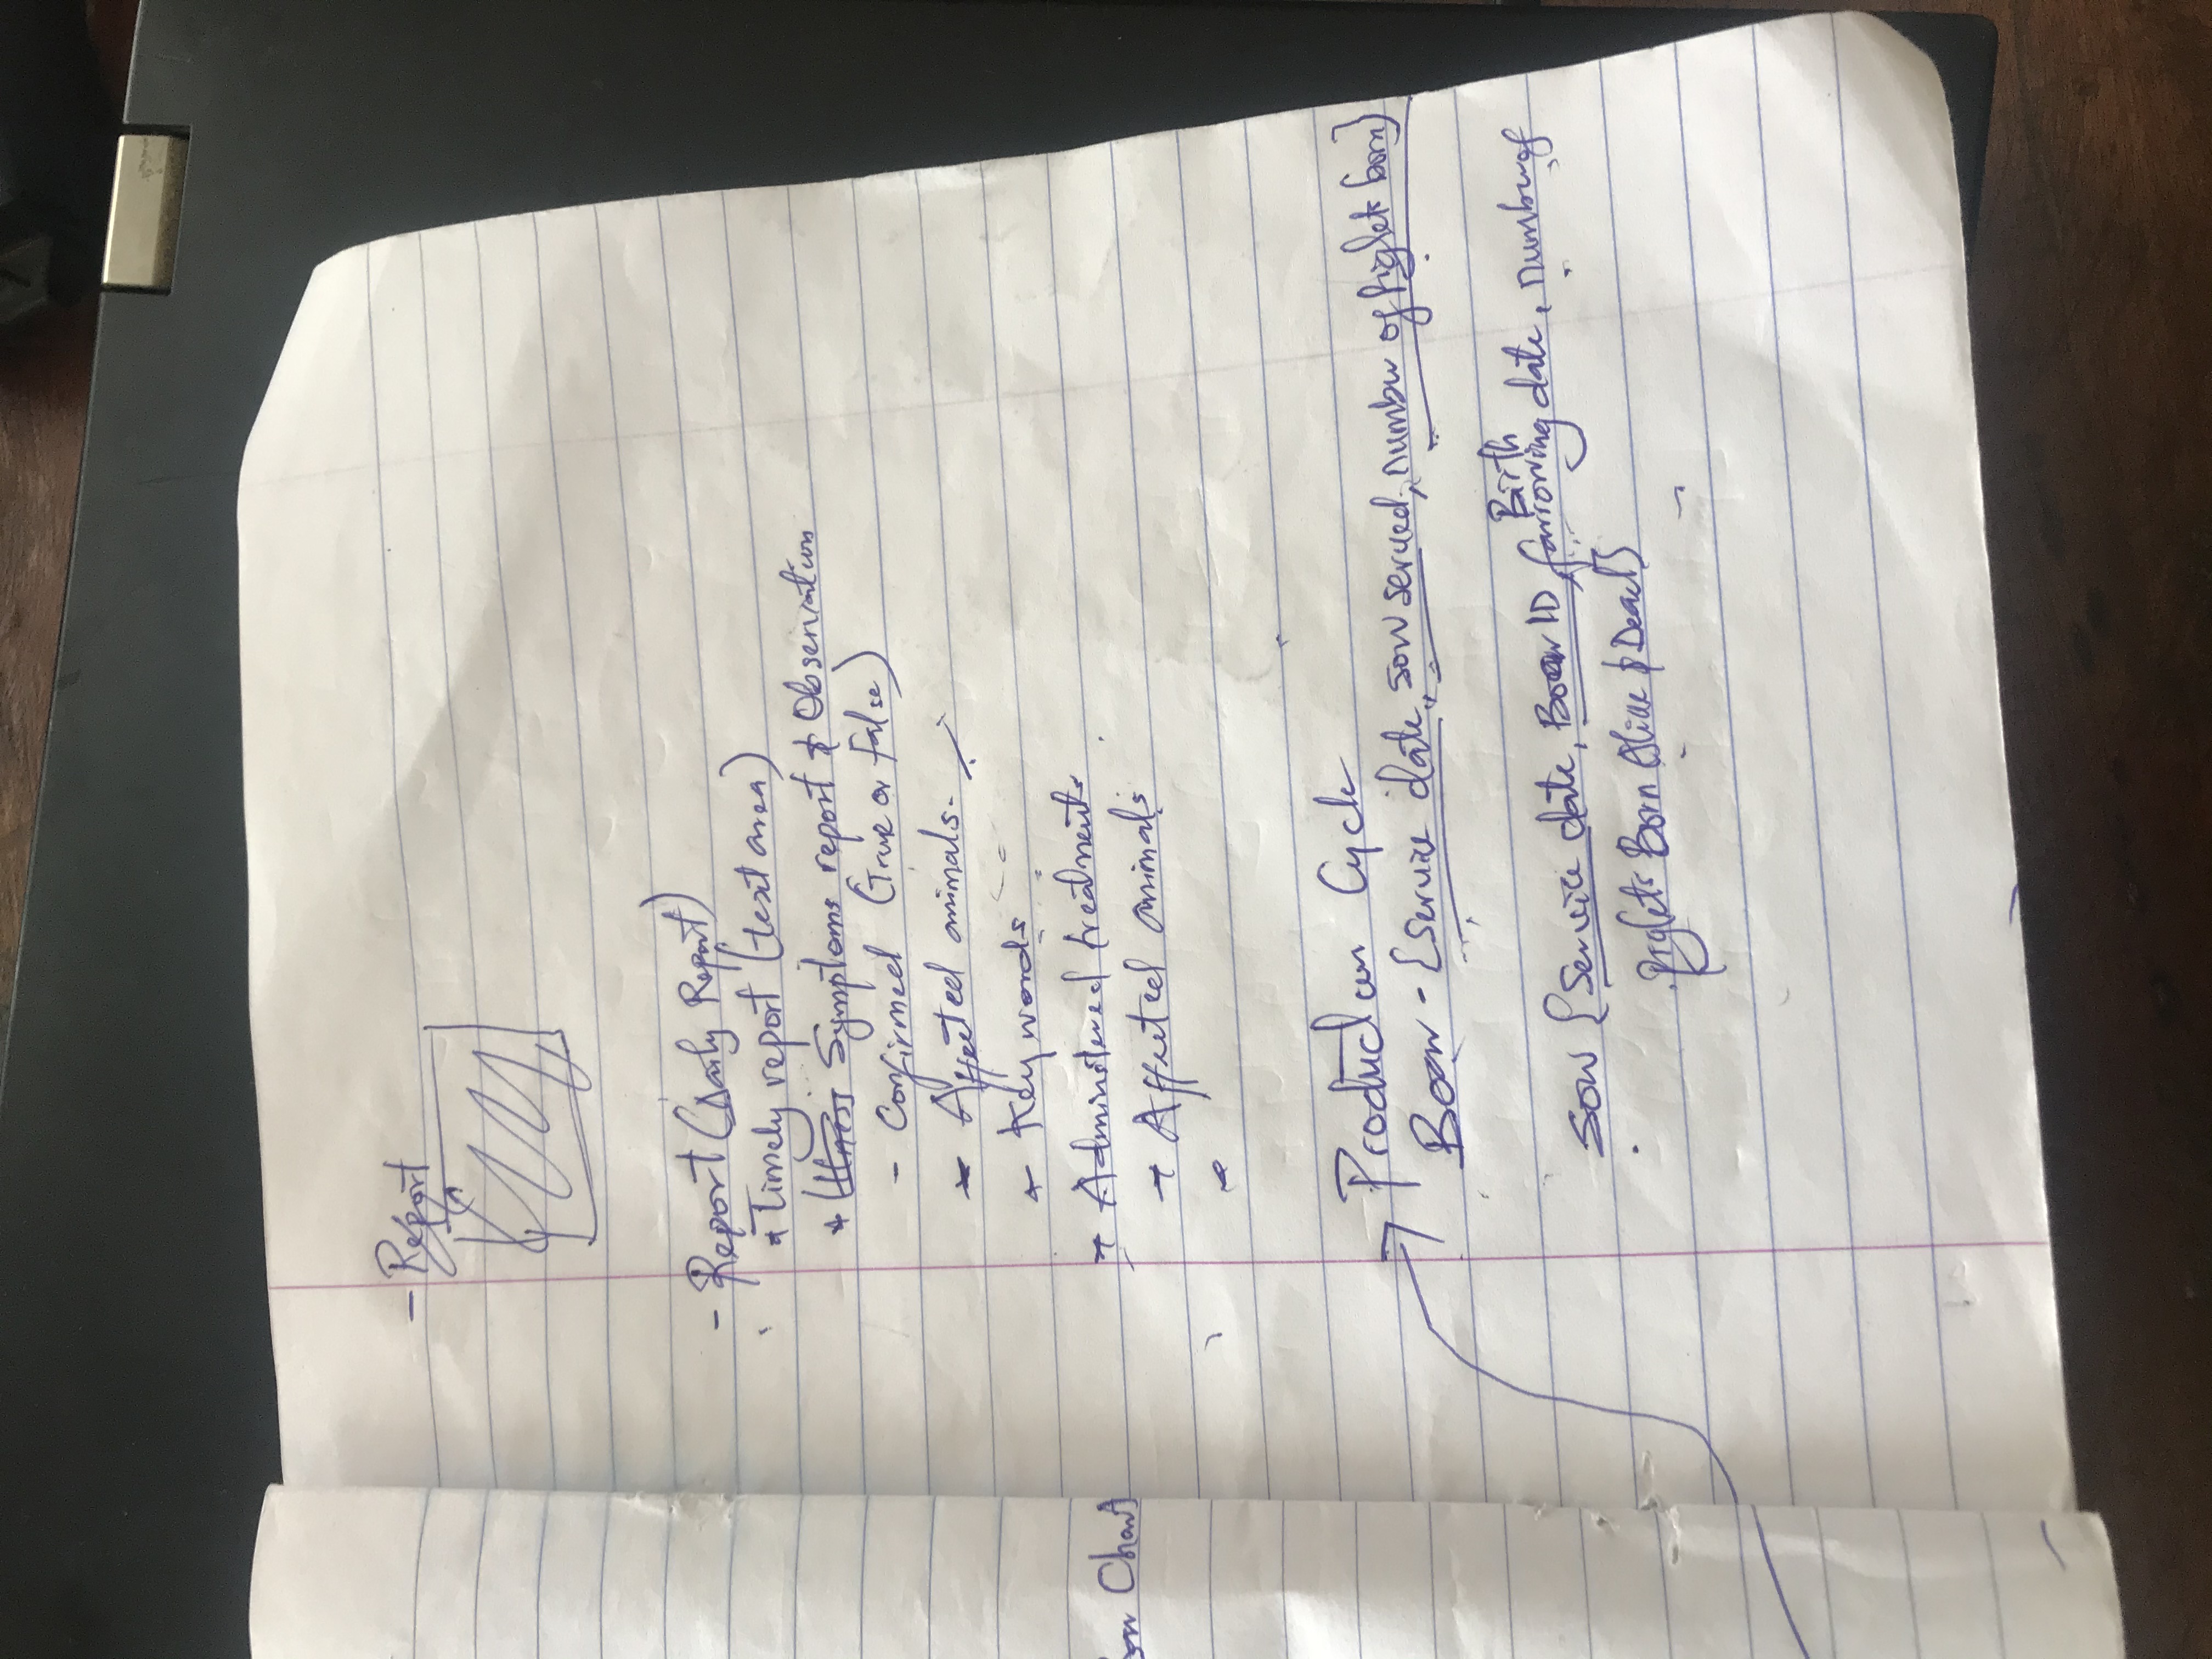 - Report
- Report (Daily Report)
* Timely report (text area)
* Illness Symptoms report & Observation
- Confirmed (True or False)
- Affected animals.
- Key words
Chart
- Administered treatments
- Affected animals
-
Production Cycle
Boar - {Service date, sow served, number of piglets born}
Birth
Sow {Service date, Boar ID, farrowing date, number of
piglets Born Alive & Dead}